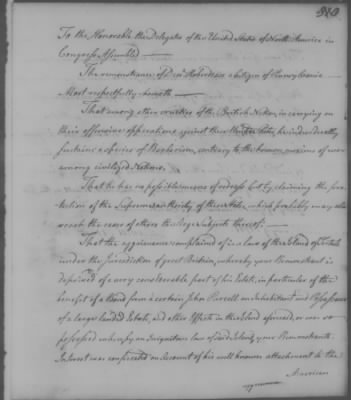 To the Honorable the Delegates of the United States of North America in
Congress Assembled
The remonstrance of a Citizen of Pennsylvania
Most respectfully sheweth
That among other cruelties of the British Nation, in carrying on
their offensive opperations against these United States,
a species of Barbarism, contrary to the known maxims of war
among civilized Nations.
That he has no possible means of redress but by claiming the pro-
tection of the Supreme authority of these States, which probably may also
reach the cases of others the liege Subjects thereof:
That the aggrievance complained of is a law of the Island of Tortola
under the Jurisdiction of great Britain, whereby your Remonstrant is
deprived of a very considerable part of his Estate, in particular of the
benefit of a Bond from a certain John Purcell an Inhabitant and Possessor
of a large landed Estate, and other Effects in the Island aforesaid, or was so
possessed when by an Iniquitous law of said Island, your Remonstrants
Interest was confiscated on Account of his well known attachment to the
American